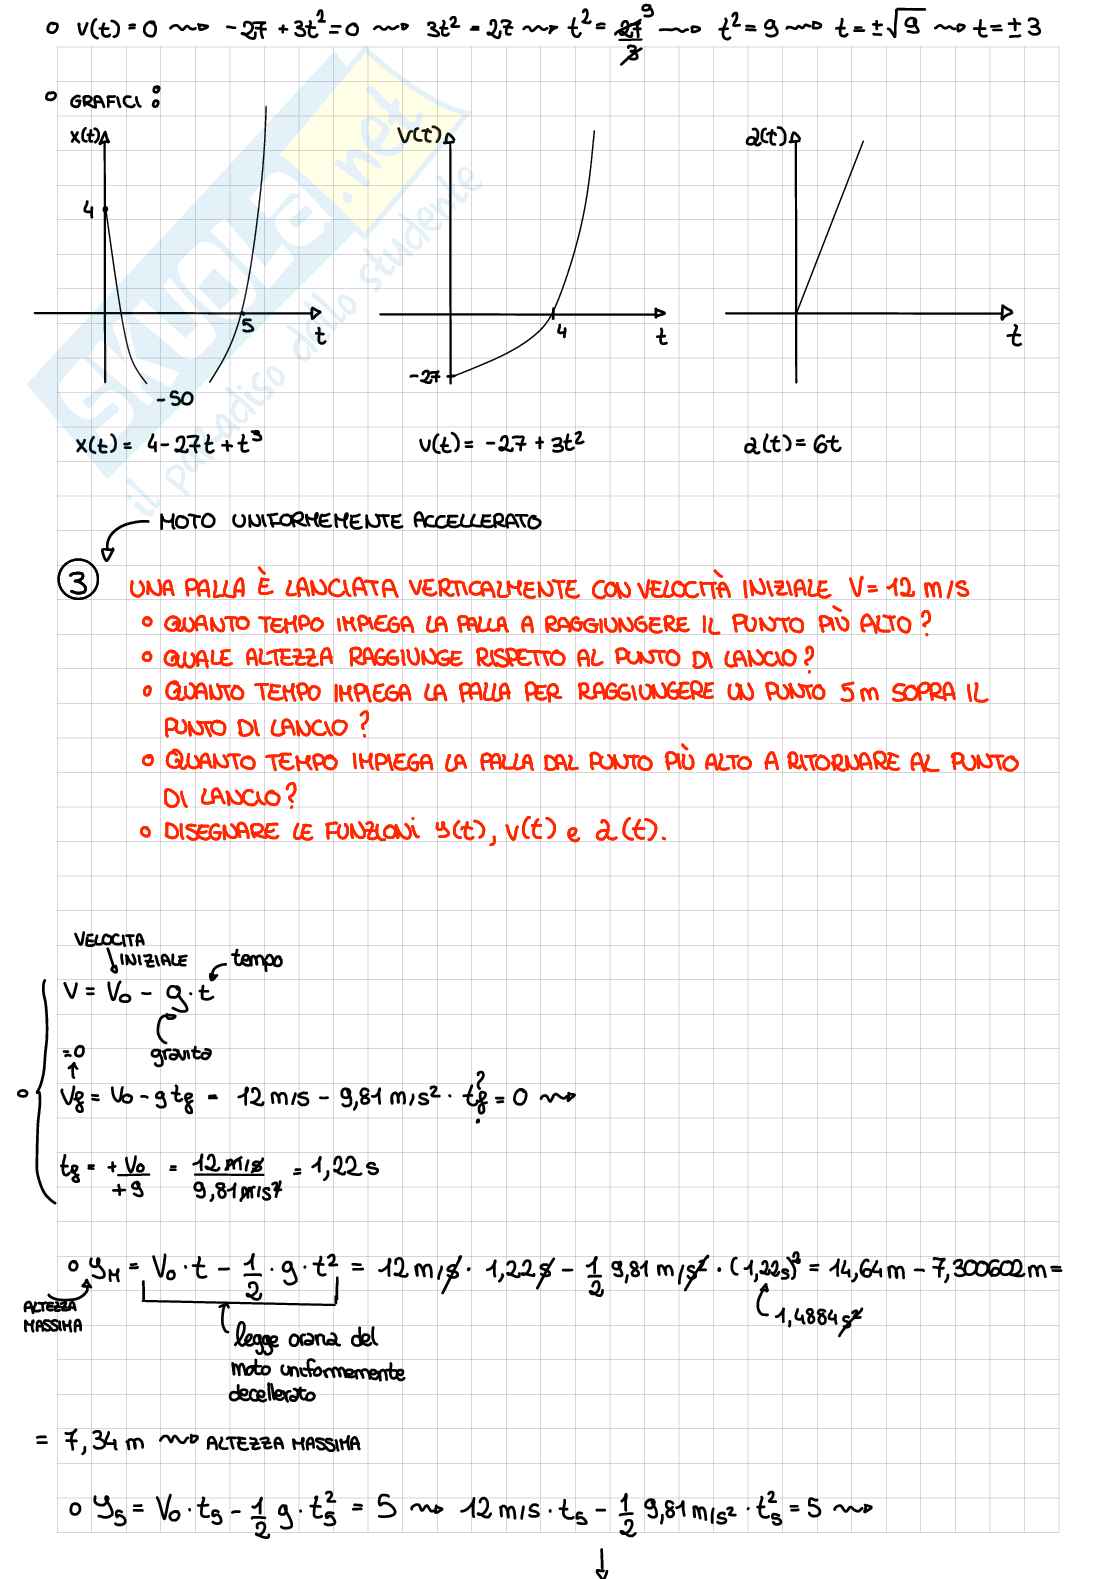 v(t) = 0 ⇝ -27 + 3t² = 0 ⇝ 3t² = 27 ⇝ t² = 27/3 9 ⇝ t² = 9 ⇝ t = ±√9 ⇝ t = ±3
GRAFICI:
x(t)
4
5
t
-50
x(t) = 4-27t+t³
v(t)
4
t
-27
v(t) = -27+3t²
a(t)
t
a(t) = 6t
SKUOLA.net
il paradiso dello studente
MOTO UNIFORMEMENTE ACCELLERATO
3 UNA PALLA È LANCIATA VERTICALMENTE CON VELOCITÀ INIZIALE V = 12 m/s
QUANTO TEMPO IMPIEGA LA PALLA A RAGGIUNGERE IL PUNTO PIÙ ALTO?
QUALE ALTEZZA RAGGIUNGE RISPETTO AL PUNTO DI LANCIO?
QUANTO TEMPO IMPIEGA LA PALLA PER RAGGIUNGERE UN PUNTO 5m SOPRA IL
PUNTO DI LANCIO?
QUANTO TEMPO IMPIEGA LA PALLA DAL PUNTO PIÙ ALTO A RITORNARE AL PUNTO
DI LANCIO?
DISEGNARE LE FUNZIONI y(t), v(t) e a(t).
VELOCITA
INIZIALE tempo
V = V₀ - g·t
gravita
=0
Vf = V₀ - g tf = 12 m/s - 9,81 m/s² · tf = 0 ⇝
?
tf = +V₀/+g = 12 m/s / 9,81 m/s² = 1,22 s
yM = V₀·t - 1/2 · g · t² = 12 m/s · 1,22 s - 1/2 9,81 m/s² · (1,22s)² = 14,64 m - 7,300602 m =
ALTEZZA
MASSIMA
1,4884 s²
legge oraria del
moto uniformemente
decellerato
= 7,34 m ⇝ ALTEZZA MASSIMA
y₅ = V₀·t₅ - 1/2 g·t₅² = 5 ⇝ 12 m/s · t₅ - 1/2 9,81 m/s² · t₅² = 5 ⇝